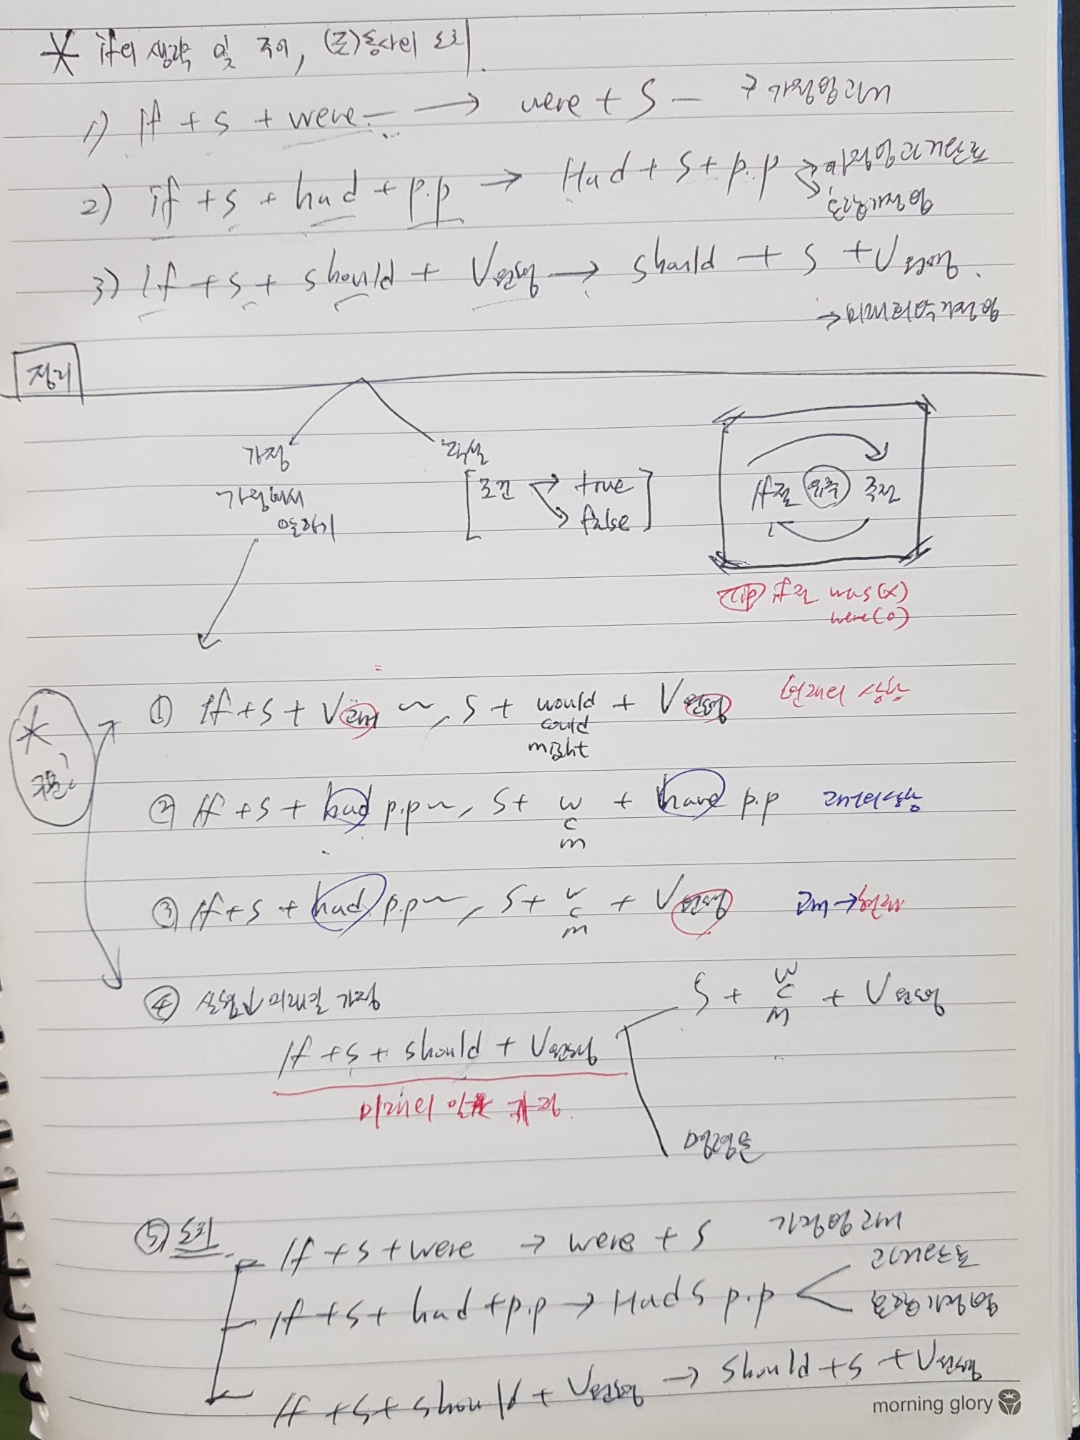 * if의 생략 및 주어, (조)동사의 도치
1) If + S + were ― → were + S ― 가정법 과거
2) if + S + had + p.p → Had + S + p.p 가정법 과거완료
혼합가정법
3) If + S + should + V원형 → should + S + V원형.
→ 미래 가정법
정리
가정 현실
가정해서 말하기
[조건 → true
→ false]
If절 위주 주절
tip If절 was(x)
were(o)
* 구분!
① If + S + V과거 ~, S + would + V원형 현재의 상상
could
might
② If + S + had p.p ~, S + w + have p.p 과거의 상상
c
m
③ If + S + had p.p ~, S + w + V원형 과거 → 현재
c
m
④ 실현 미래 가정 S + w + V원형
c
m
If + S + should + V원형
미래의 일 가정
명령문
⑤ 도치
If + S + were → were + S 가정법 과거
If + S + had + p.p → Had S p.p 과거완료
혼합가정법
If + S + should + V원형 → should + S + V원형
morning glory